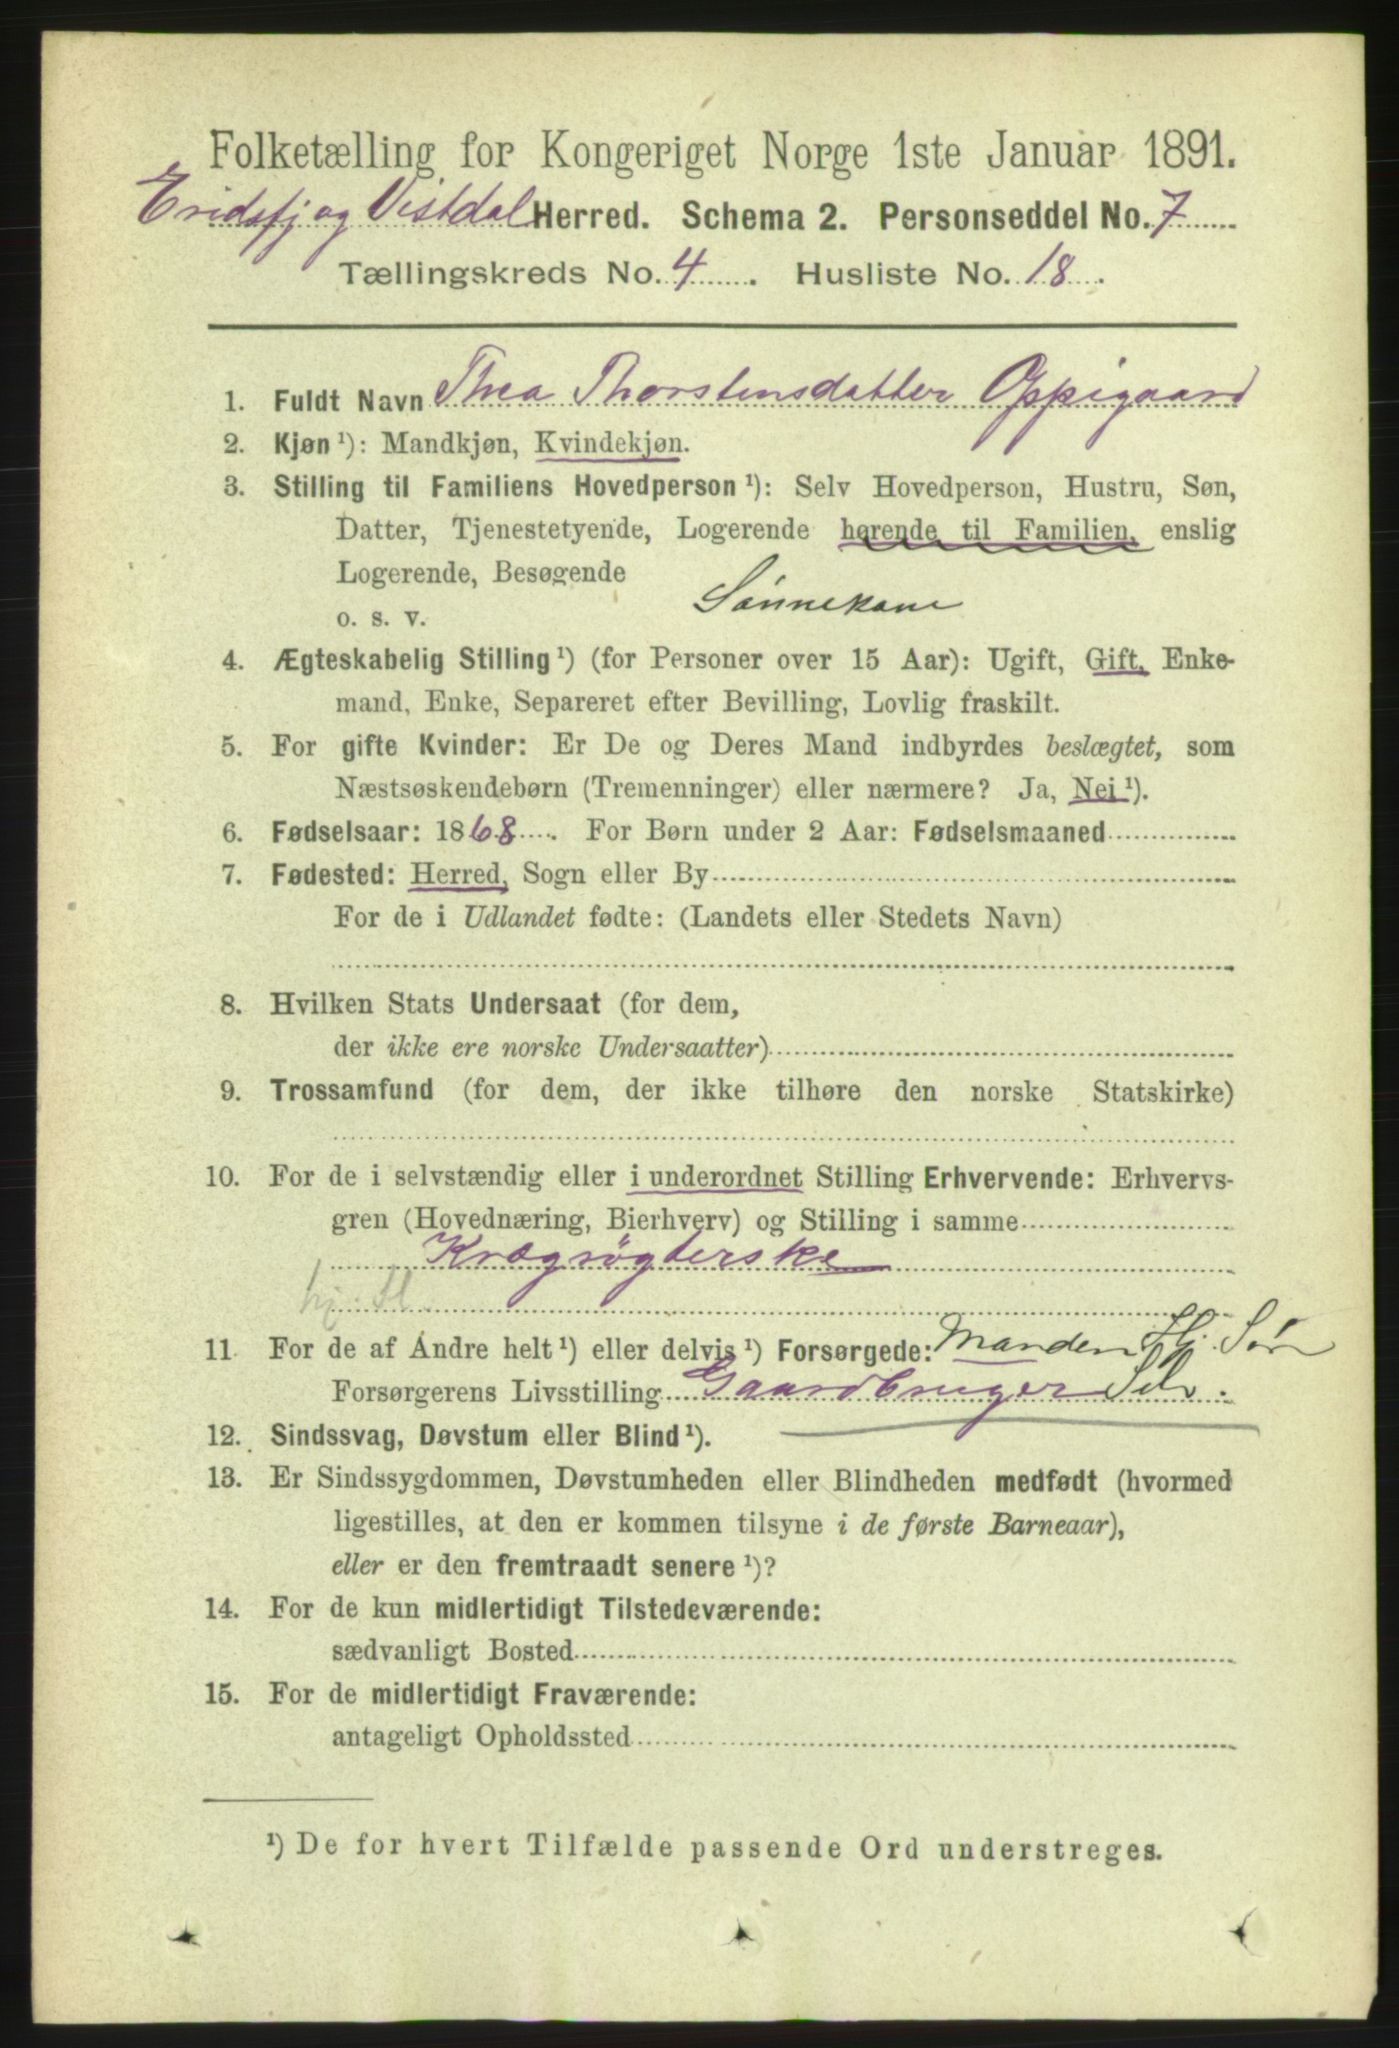 Folketælling for Kongeriget Norge 1ste Januar 1891.
Eridsfj og Vistdal Herred. Schema 2. Personseddel No. 7
Tællingskreds No. 4. Husliste No. 18.
1. Fuldt Navn Thea Thorstensdatter Oppigaard
2. Kjøn ¹): Mandkjøn, Kvindekjøn.
3. Stilling til Familiens Hovedperson ¹): Selv Hovedperson, Hustru, Søn,
Datter, Tjenestetyende, Logerende hørende til Familien, enslig
Logerende, Besøgende
o. s. v. Sønnekone
4. Ægteskabelig Stilling ¹) (for Personer over 15 Aar): Ugift, Gift, Enke-
mand, Enke, Separeret efter Bevilling, Lovlig fraskilt.
5. For gifte Kvinder: Er De og Deres Mand indbyrdes beslægtet, som
Næstsøskendebørn (Tremenninger) eller nærmere? Ja, Nei ¹).
6. Fødselsaar: 1868. For Børn under 2 Aar: Fødselsmaaned
7. Fødested: Herred, Sogn eller By
For de i Udlandet fødte: (Landets eller Stedets Navn)
8. Hvilken Stats Undersaat (for dem,
der ikke ere norske Undersaatter)
9. Trossamfund (for dem, der ikke tilhøre den norske Statskirke)
10. For de i selvstændig eller i underordnet Stilling Erhvervende: Erhvervs-
gren (Hovednæring, Bierhverv) og Stilling i samme
Krægrøgterske
11. For de af Andre helt ¹) eller delvis ¹) Forsørgede: Manden Hj. Søn
Forsørgerens Livsstilling Gaardbruger Selv.
12. Sindssvag, Døvstum eller Blind ¹).
13. Er Sindssygdommen, Døvstumheden eller Blindheden medfødt (hvormed
ligestilles, at den er kommen tilsyne i de første Barneaar),
eller er den fremtraadt senere ¹)?
14. For de kun midlertidigt Tilstedeværende:
sædvanligt Bosted
15. For de midlertidigt Fraværende:
antageligt Opholdssted
¹) De for hvert Tilfælde passende Ord understreges.